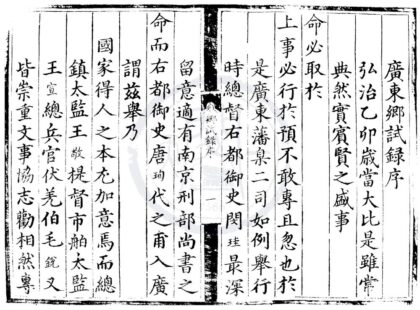 廣東鄉試錄序
弘治乙卯歲當大比是雖常
典然實賓賢之盛事
命必取於
上事必行於預不敢專且忽也於
是廣東藩臬二司如例舉行
時總督右都御史閔珪最深
鄉試錄序
一
留意適有南京刑部尚書之
命而右都御史唐珣代之甫入廣
謂茲舉乃
國家得人之本尤加意焉而總
鎮太監王敬提督市舶太監
王宣總兵官伏羌伯毛銳又
皆崇重文事協志勸相然專